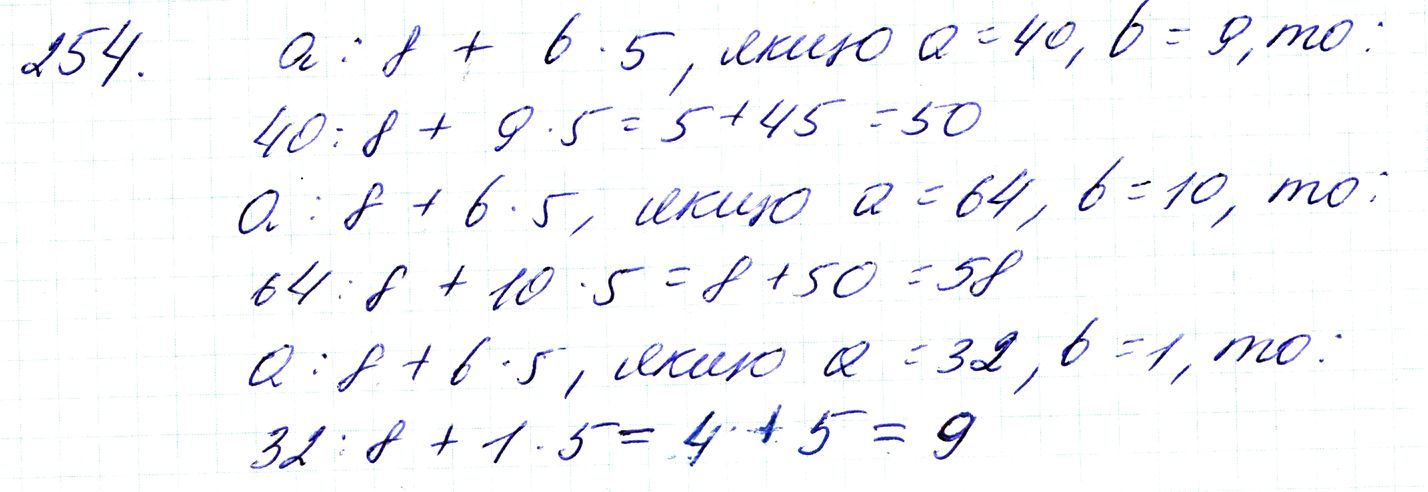 254. a : 8 + b · 5, якщо a = 40, b = 9, то:
40 : 8 + 9 · 5 = 5 + 45 = 50
a : 8 + b · 5, якщо a = 64, b = 10, то:
64 : 8 + 10 · 5 = 8 + 50 = 58
a : 8 + b · 5, якщо a = 32, b = 1, то:
32 : 8 + 1 · 5 = 4 + 5 = 9